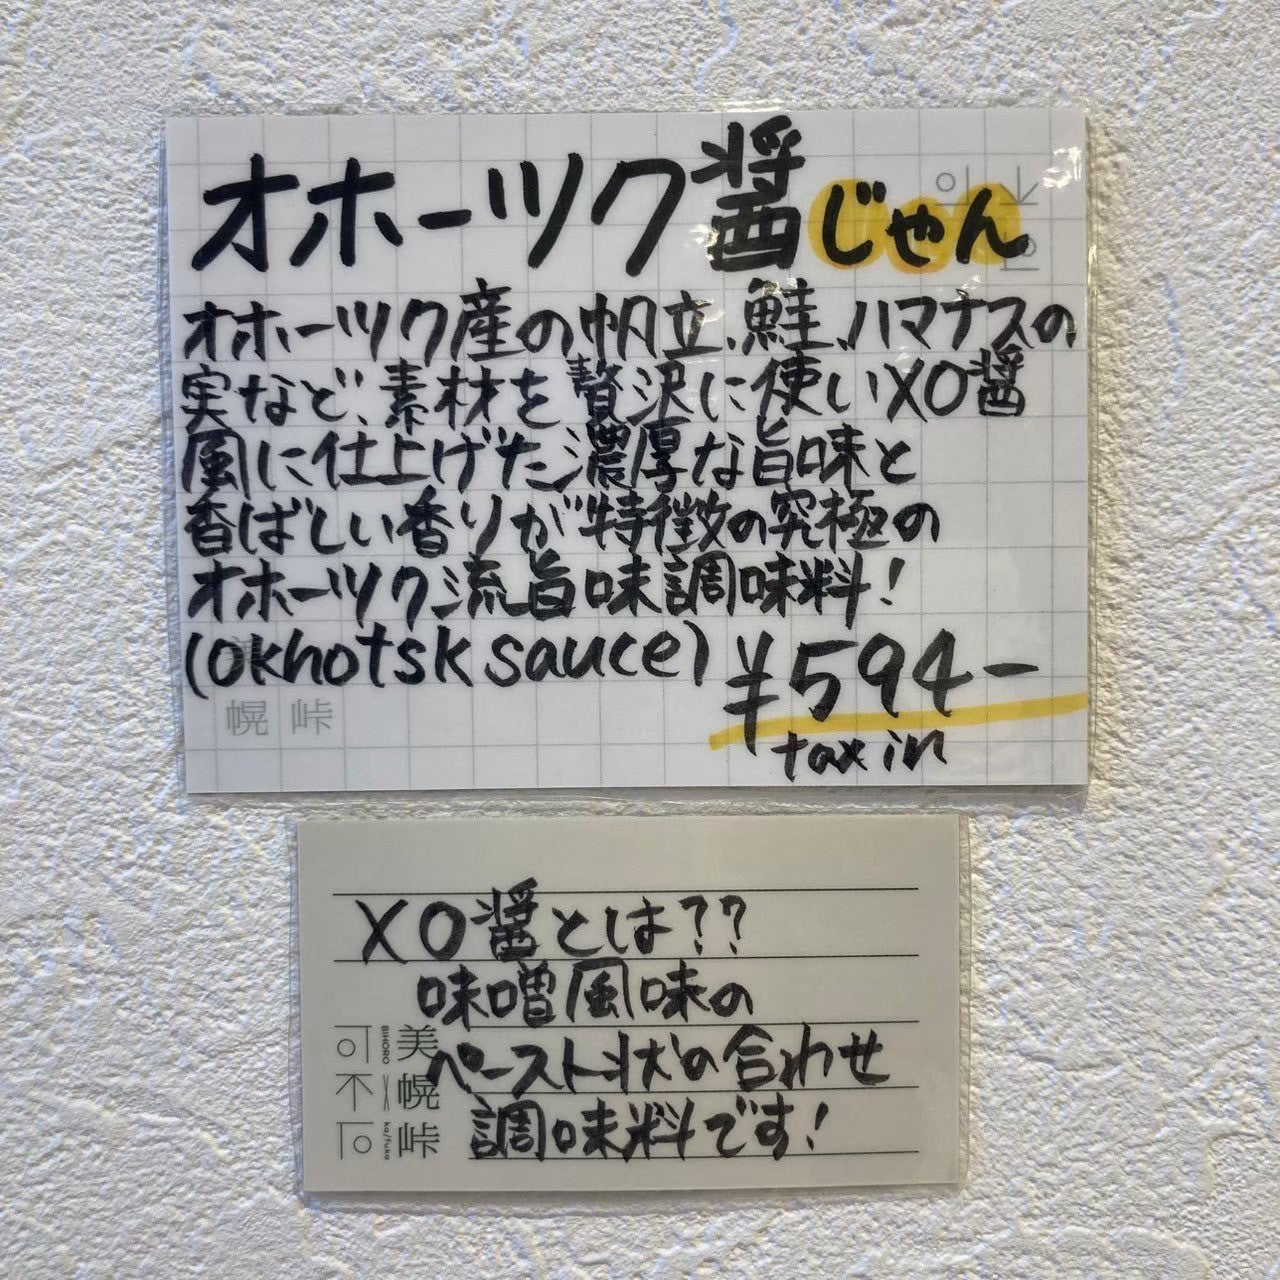 オホーツク醤じゃん
オホーツク産の帆立、鮭、ハマナスの
実など、素材を贅沢に使いXO醤
風に仕上げた濃厚な旨味と
香ばしい香りが特徴の究極の
オホーツク流旨味調味料!
(okhotsk sauce)
¥594-
tax in
幌 峠
XO醤とは??
味噌風味の
ペースト状の合わせ
調味料です!
美幌峠
BIHORO
ka/fuka